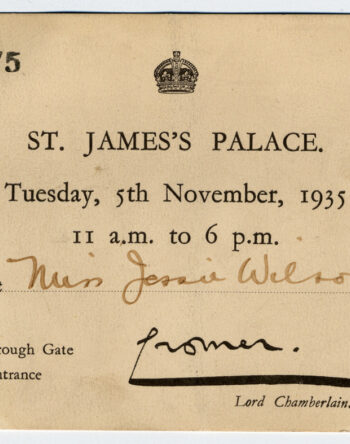 75
ST. JAMES'S PALACE.
Tuesday, 5th November, 1935
11 a.m. to 6 p.m.
Miss Jessie Wilso
Cromer.
rough Gate
ntrance
Lord Chamberlain.